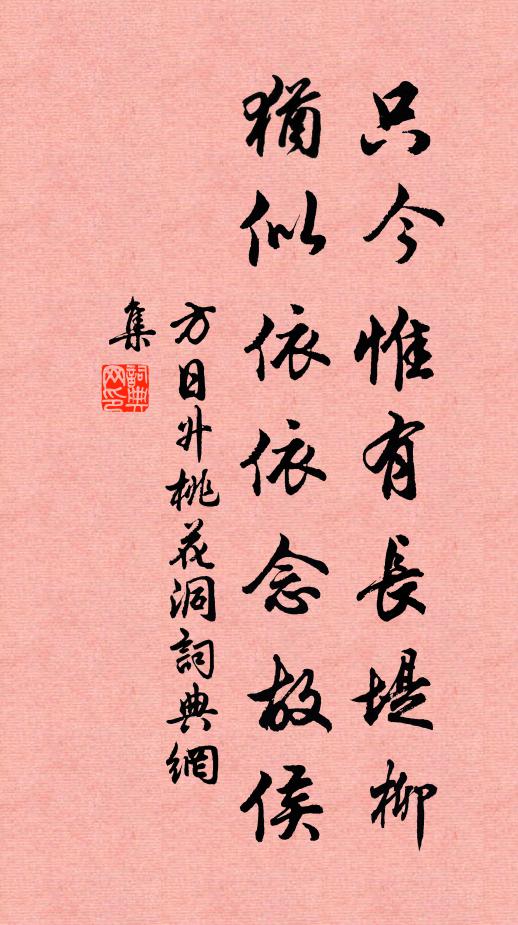 只今惟有長堤柳
猶似依依念故侯
方日升桃花洞詞典網
集
詞典網印